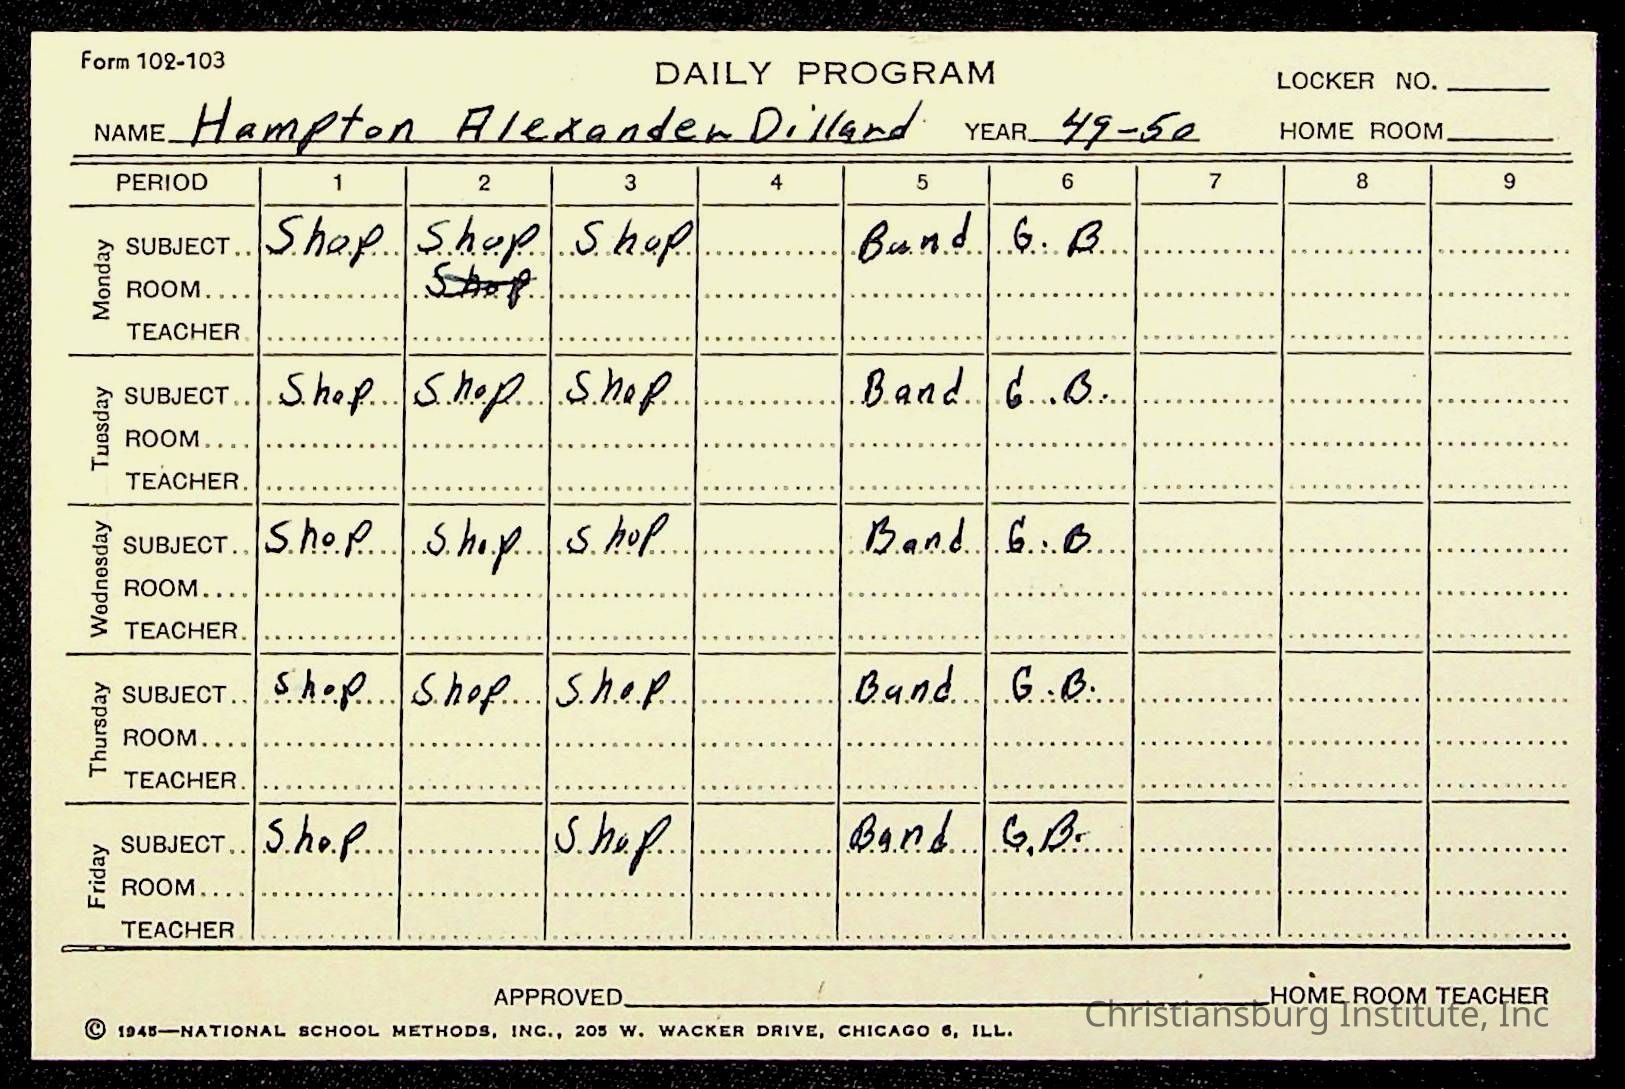 Form 102-103
DAILY PROGRAM
LOCKER NO.
NAME Hampton Alexander Dillard YEAR 49-50 HOME ROOM
PERIOD 1 2 3 4 5 6 7 8 9
Monday
SUBJECT.. Shop Shop Shop Band G. B
ROOM.... Shop
TEACHER.
Tuesday
SUBJECT.. Shop Shop Shop Band G. B.
ROOM....
TEACHER.
Wednesday
SUBJECT.. Shop Shop Shop Band G. B
ROOM....
TEACHER.
Thursday
SUBJECT.. Shop Shop Shop Band G. B.
ROOM....
TEACHER.
Friday
SUBJECT.. Shop Shop Band G. B.
ROOM....
TEACHER
APPROVED HOME ROOM TEACHER
Christiansburg Institute, Inc
© 1945—NATIONAL SCHOOL METHODS, INC., 205 W. WACKER DRIVE, CHICAGO 6, ILL.